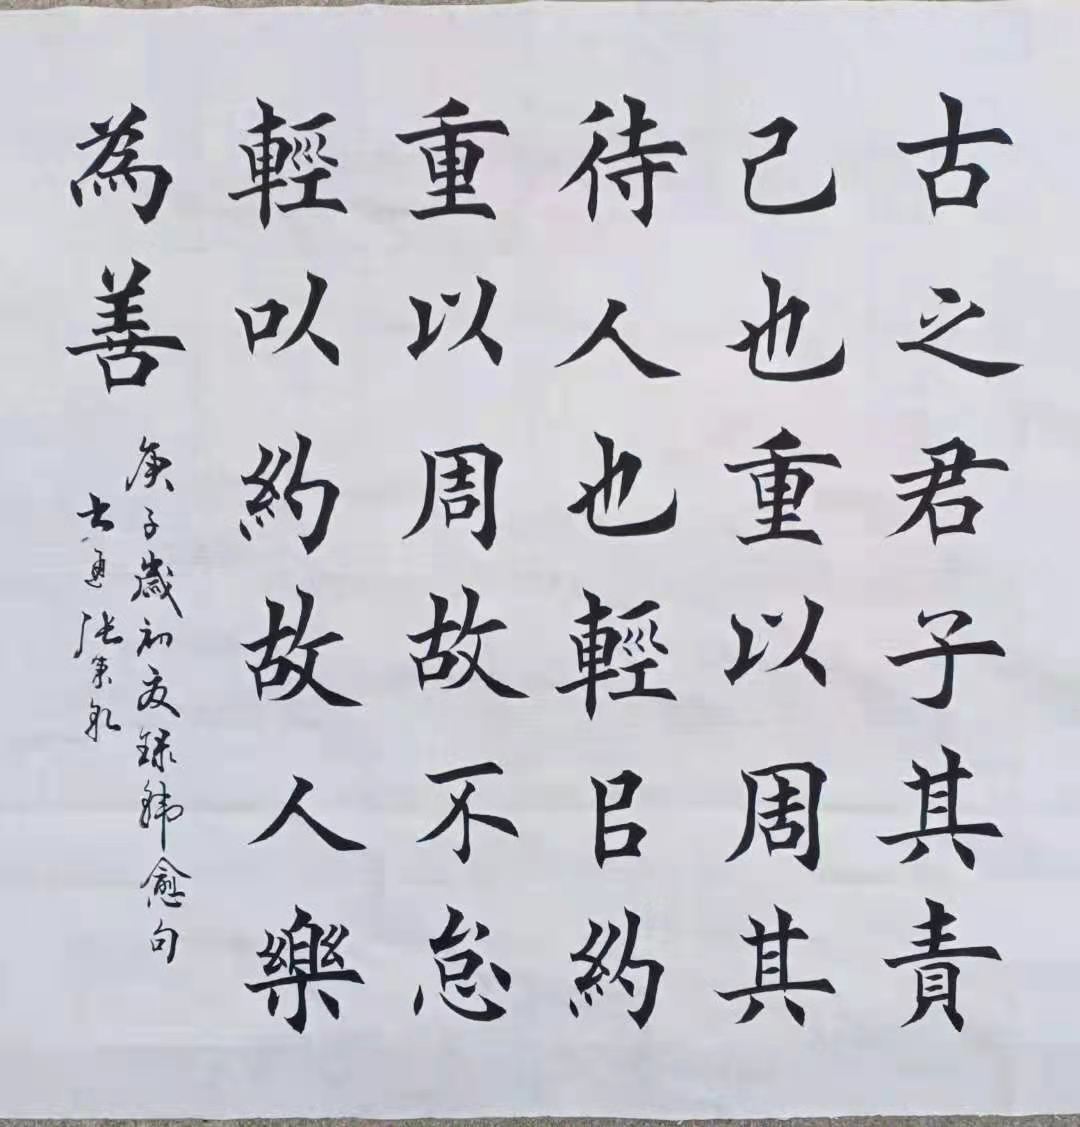 古之君子其責
己也重以周其
待人也輕㠯約
重以周故不怠
輕以約故人樂
為善
庚子歲初夏錄韓愈句
大通張秉